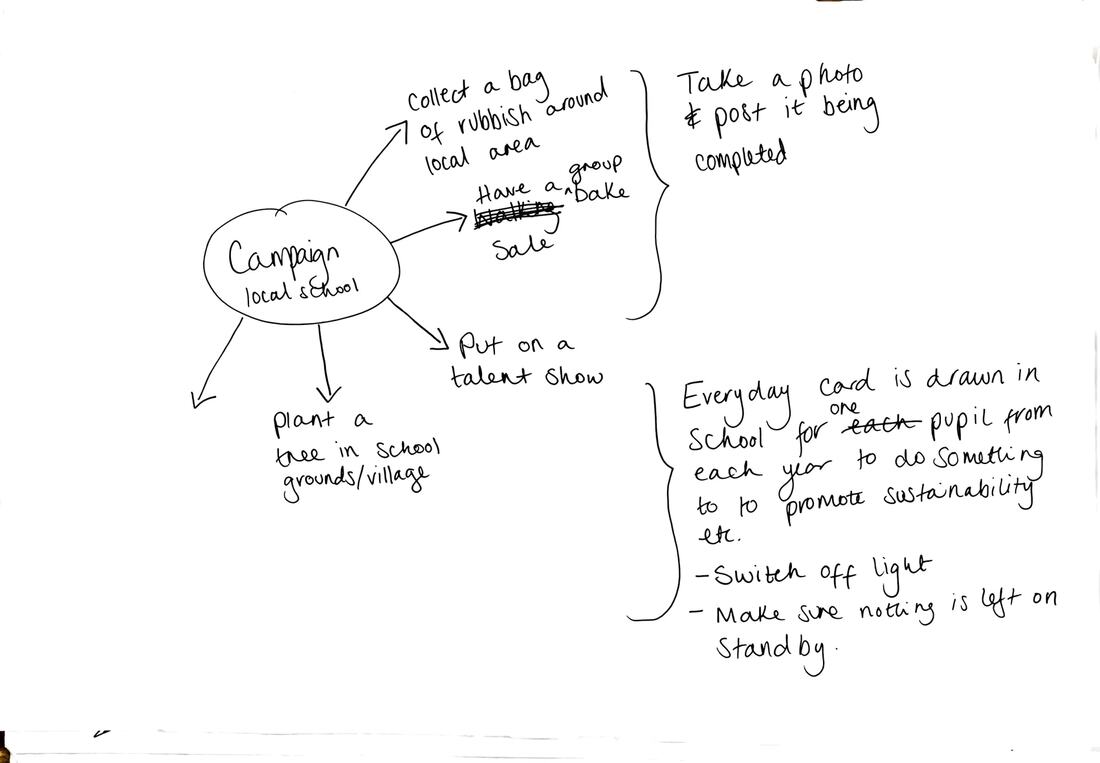 Campaign
local school
Collect a bag
of rubbish around
local area
Have a group bake
Sale
Put on a
talent show
Plant a
tree in school
grounds/village
Take a photo
& post it being
completed
Everyday card is drawn in
School for one each pupil from
each year to do something
to to promote sustainability
etc.
- Switch off light
- Make sure nothing is left on
Standby.